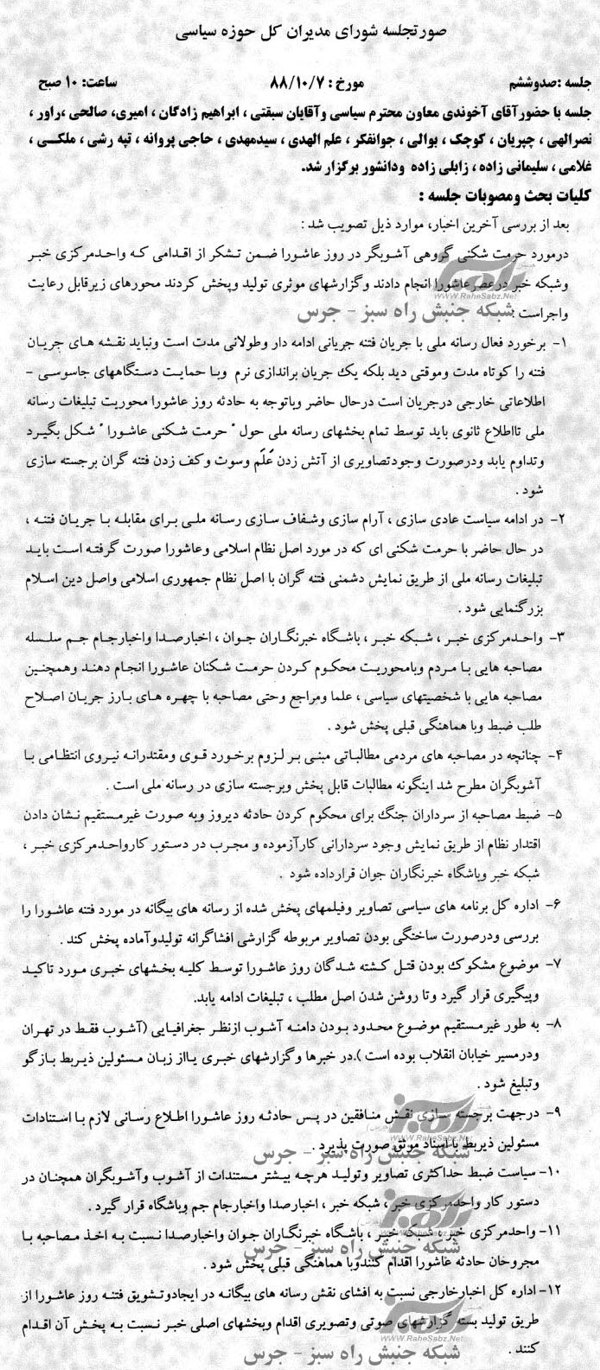 صورتجلسه شورای مدیران کل حوزه سیاسی
جلسه :صدوششم مورخ : ۸۸/۱۰/۷ ساعت: ۱۰ صبح
جلسه با حضورآقای آخوندی معاون محترم سیاسی وآقایان سبقتی ، ابراهیم زادگان ، امیری، صالحی ،راور ،
نصرالهی ، چپریان ، کوچک ، بوالی ، جوانفکر ، علم الهدی ، سیدمهدی ، حاجی پروانه ، تپه رشی ، ملکی ،
غلامی ، سلیمانی زاده ، زابلی زاده ودانشور برگزار شد.
کلیات بحث ومصوبات جلسه :
بعد از بررسی آخرین اخبار، موارد ذیل تصویب شد :
درمورد حرمت شکنی گروهی آشوبگر در روز عاشورا ضمن تشکر از اقدامی که واحدمرکزی خبر
وشبکه خبر درعصرعاشورا انجام دادند وگزارشهای موثری تولید وپخش کردند محورهای زیرقابل رعایت
واجراست :
۱- برخورد فعال رسانه ملی با جریان فتنه جریانی ادامه دار وطولانی مدت است ونباید نقشه های جریان
فتنه را کوتاه مدت وموقتی دید بلکه یک جریان براندازی نرم وبا حمایت دستگاههای جاسوسی –
اطلاعاتی خارجی درجریان است درحال حاضر وباتوجه به حادثه روز عاشورا محوریت تبلیغات رسانه
ملی تااطلاع ثانوی باید توسط تمام بخشهای رسانه ملی حول " حرمت شکنی عاشورا " شکل بگیرد
وتداوم یابد ودرصورت وجودتصاویری از آتش زدن عَلَم وسوت وکف زدن فتنه گران برجسته سازی
شود .
۲- در ادامه سیاست عادی سازی ، آرام سازی وشفاف سازی رسانه ملی برای مقابله با جریان فتنه ،
در حال حاضر با حرمت شکنی ای که در مورد اصل نظام اسلامی وعاشورا صورت گرفته است باید
تبلیغات رسانه ملی از طریق نمایش دشمنی فتنه گران با اصل نظام جمهوری اسلامی واصل دین اسلام
بزرگنمایی شود .
۳- واحدمرکزی خبر ، شبکه خبر ، باشگاه خبرنگاران جوان ، اخبارصدا واخبارجام جم سلسله
مصاحبه هایی با مردم وبامحوریت محکوم کردن حرمت شکنان عاشورا انجام دهند وهمچنین
مصاحبه هایی با شخصیتهای سیاسی ، علما ومراجع وحتی مصاحبه با چهره های بارز جریان اصلاح
طلب ضبط وبا هماهنگی قبلی پخش شود .
۴- چنانچه در مصاحبه های مردمی مطالباتی مبنی بر لزوم برخورد قوی ومقتدرانه نیروی انتظامی با
آشوبگران مطرح شد اینگونه مطالبات قابل پخش وبرجسته سازی در رسانه ملی است .
۵- ضبط مصاحبه از سرداران جنگ برای محکوم کردن حادثه دیروز وبه صورت غیرمستقیم نشان دادن
اقتدار نظام از طریق نمایش وجود سردارانی کارآزموده و مجرب در دستور کارواحدمرکزی خبر ،
شبکه خبر وباشگاه خبرنگاران جوان قرارداده شود .
۶- اداره کل برنامه های سیاسی تصاویر وفیلمهای پخش شده از رسانه های بیگانه در مورد فتنه عاشورا را
بررسی ودرصورت ساختگی بودن تصاویر مربوطه گزارشی افشاگرانه تولیدوآماده پخش کند .
۷- موضوع مشکوک بودن قتل کشته شدگان روز عاشورا توسط کلیه بخشهای خبری مورد تاکید
وپیگیری قرار گیرد وتا روشن شدن اصل مطلب ، تبلیغات ادامه یابد.
۸- به طور غیرمستقیم موضوع محدود بودن دامنه آشوب ازنظر جغرافیایی (آشوب فقط در تهران
ودرمسیر خیابان انقلاب بوده است ).در خبرها وگزارشهای خبری یااز زبان مسئولین ذیربط بازگو
وتبلیغ شود .
۹- درجهت برجسته سازی نقش منافقین در پس حادثه روز عاشورا اطلاع رسانی لازم با استنادات
مسئولین ذیربط با اسناد موثق صورت پذیرد .
۱۰- سیاست ضبط حداکثری تصاویر وتولید هرچه بیشتر مستندات از آشوب وآشوبگران همچنان در
دستور کار واحدمرکزی خبر ، شبکه خبر ، اخبارصدا واخبارجام جم وباشگاه قرار گیرد .
۱۱- واحدمرکزی خبر ، شبکه خبر ، باشگاه خبرنگاران جوان واخبارصدا نسبت به اخذ مصاحبه با
مجروحان حادثه عاشورا اقدام کنندوبا هماهنگی قبلی پخش شود .
۱۲- اداره کل اخبارخارجی نسبت به افشای نقش رسانه های بیگانه در ایجادوتشویق فتنه روز عاشورا از
طریق تولید بسته گزارشهای صوتی وتصویری اقدام وبخشهای اصلی خبر نسبت به پخش آن اقدام
کنند .
راه سبز
www.RaheSabz.Net
شبکه جنبش راه سبز - جرس
راه سبز
www.RaheSabz.Net
شبکه جنبش راه سبز - جرس
راه سبز
www.RaheSabz.Net
شبکه جنبش راه سبز - جرس
راه سبز
www.RaheSabz.Net
شبکه جنبش راه سبز - جرس